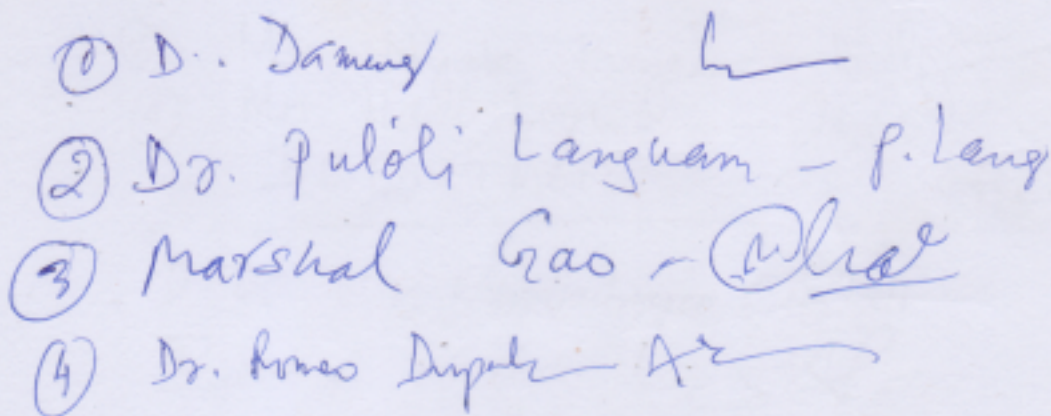 ① D.. Dameng
② Dr. Puloli Languam - P. Lang
③ Marshal Gao -
④ Dr. Romeo